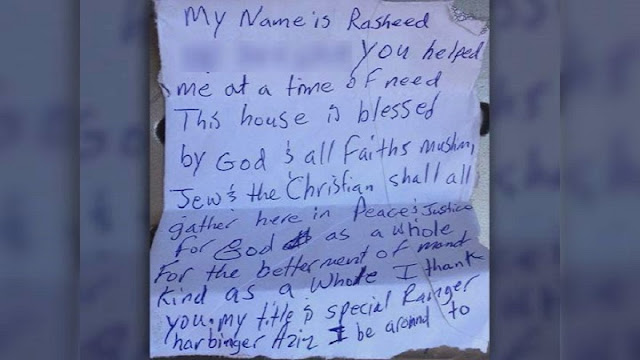 My Name is Rasheed
you helped
me at a time of need
This house is blessed
by God & all Faiths muslim,
Jew & the Christian shall all
gather here in Peace & Justice
for God as a whole
For the betterment of mand
kind as a whole I thank
you. my title is special Ranger
harbinger Aziz I be around to